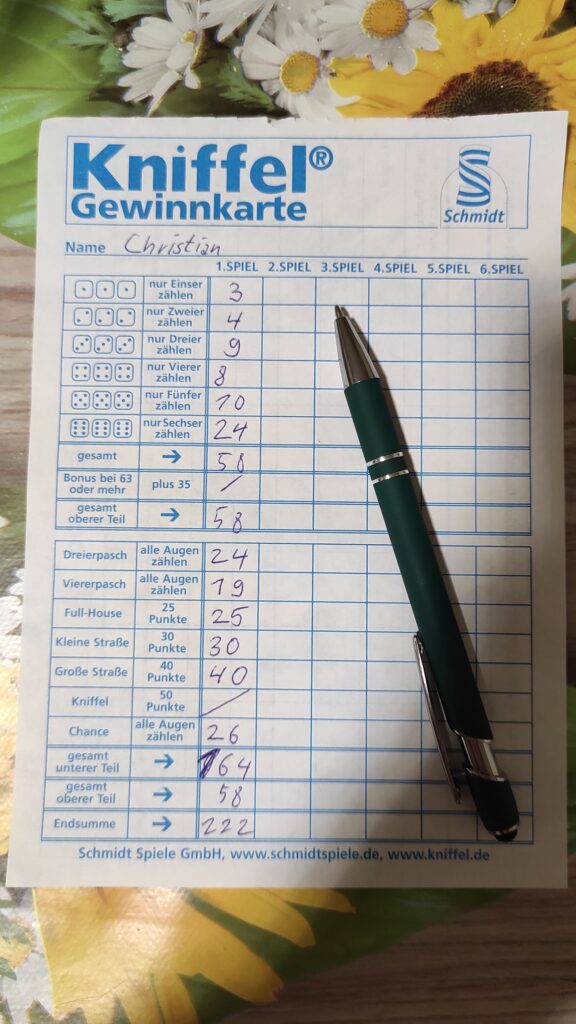 Kniffel®
Gewinnkarte
Schmidt
Name Christian
1.SPIEL 2.SPIEL 3.SPIEL 4.SPIEL 5.SPIEL 6.SPIEL
nur Einser zählen 3
nur Zweier zählen 4
nur Dreier zählen 9
nur Vierer zählen 8
nur Fünfer zählen 10
nur Sechser zählen 24
gesamt → 58
Bonus bei 63 oder mehr plus 35 /
gesamt oberer Teil → 58
Dreierpasch alle Augen zählen 24
Viererpasch alle Augen zählen 19
Full-House 25 Punkte 25
Kleine Straße 30 Punkte 30
Große Straße 40 Punkte 40
Kniffel 50 Punkte /
Chance alle Augen zählen 26
gesamt unterer Teil → 164
gesamt oberer Teil → 58
Endsumme → 222
Schmidt Spiele GmbH, www.schmidtspiele.de, www.kniffel.de